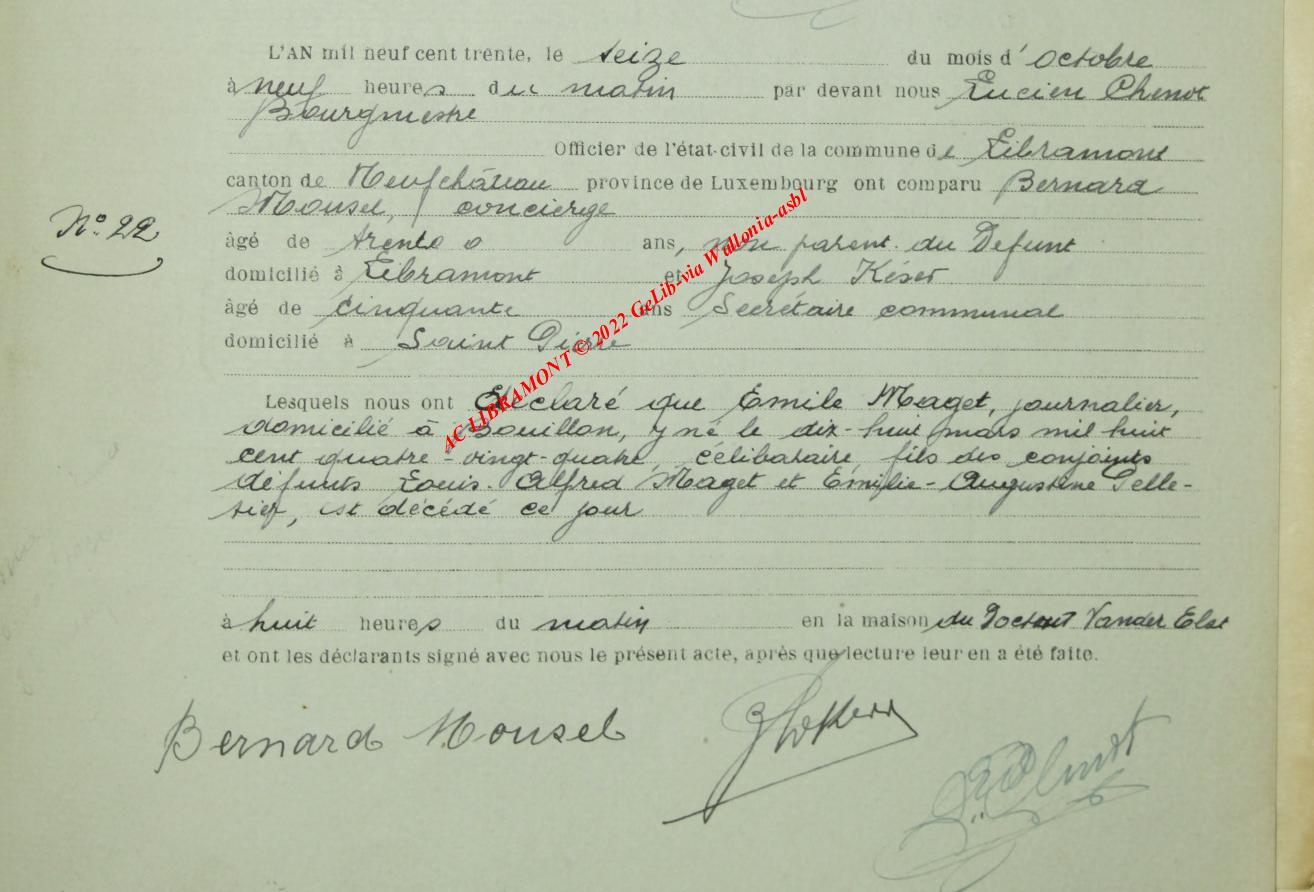 L'AN mil neuf cent trente, le seize du mois d'octobre
à neuf heures du matin par devant nous Lucien Chenot
Bourgmestre
Officier de l'état-civil de la commune de Libramont
canton de Neufchâteau province de Luxembourg ont comparu Bernard
Mousel, concierge
N° 22
âgé de trente ans, non parent du Defunt
domicilié à Libramont et Joseph Késer
âgé de cinquante ans Secrétaire communal
domicilié à Saint Pierre
Lesquels nous ont déclaré que Emile Maget, journalier,
domicilié à Bouillon, y né le dix-huit mars mil huit
cent quatre-vingt-quatre, célibataire, fils des conjoints
défunts Louis-Alfred Maget et Emilie-Augustine Pelle-
tier, est décédé ce jour
à huit heures du matin en la maison du Docteur Vander Elst
et ont les déclarants signé avec nous le présent acte, après que lecture leur en a été faite.
Bernard Mousel
AC LIBRAMONT © 2022 GeLib-via Wallonia-asbl